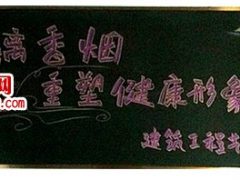 离香烟
重塑健康形象
建筑工程
网